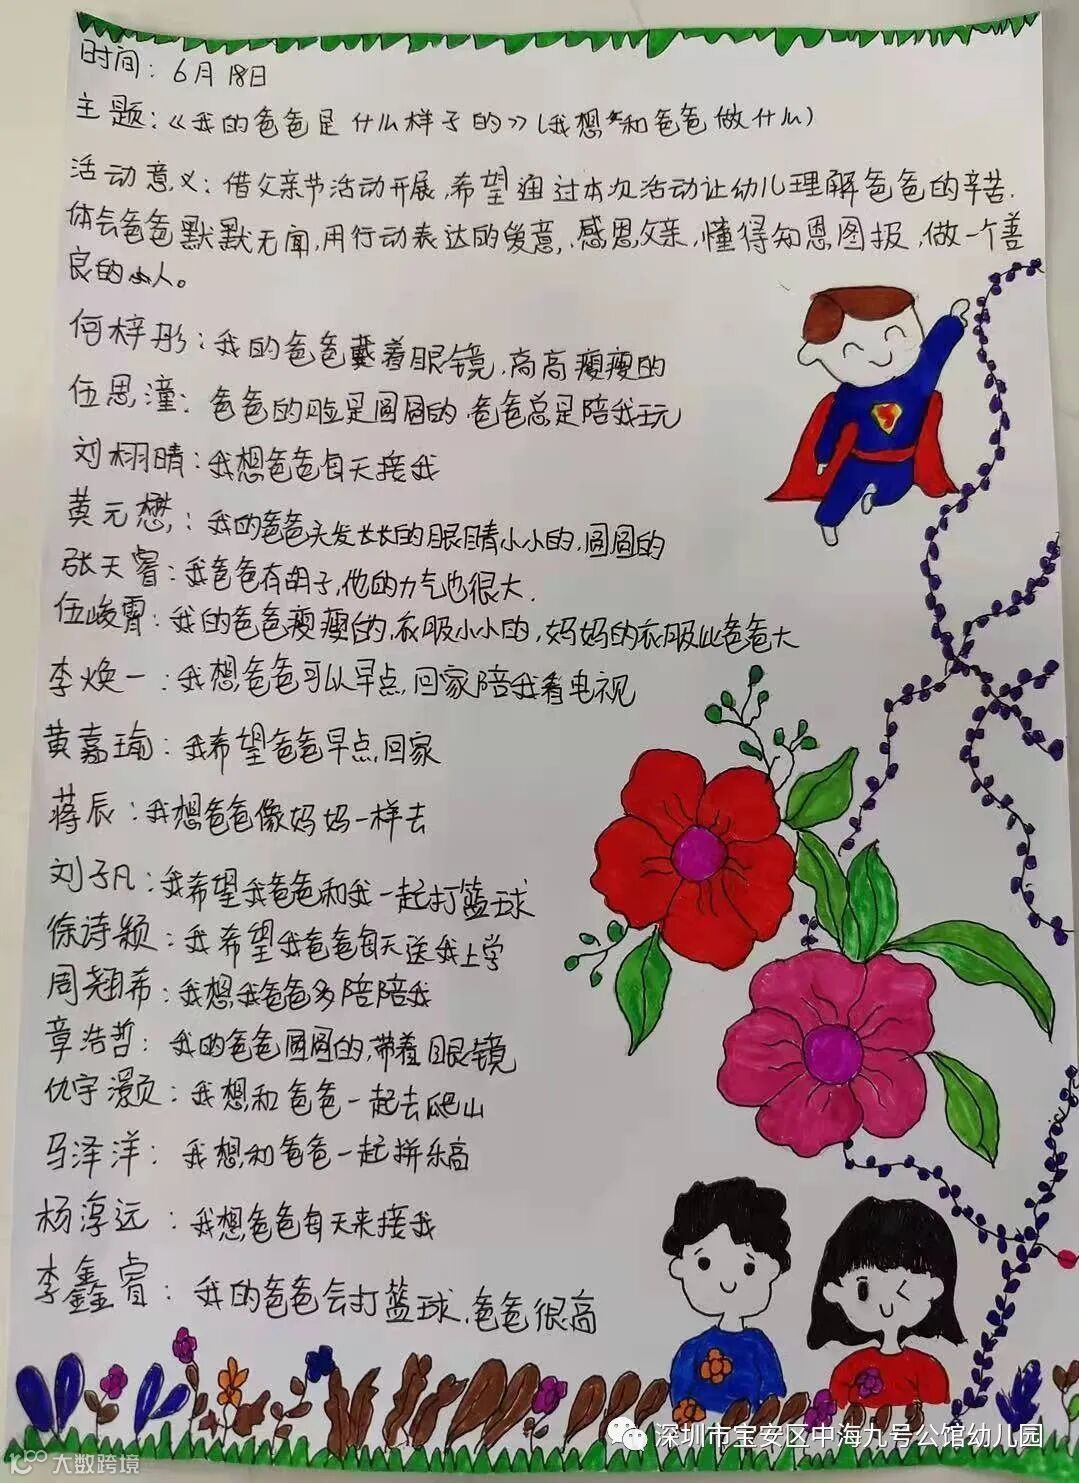 时间：6月18日
主题：《我的爸爸是什么样子的》（我想和爸爸做什么）
活动意义：借父亲节活动开展，希望通过本次活动让幼儿理解爸爸的辛苦，
体会爸爸默默无闻，用行动表达的爱意，感恩父亲，懂得知恩图报，做一个善
良的小人。
何梓彤：我的爸爸戴着眼镜，高高瘦瘦的
伍思潼：爸爸的脸是圆圆的，爸爸总是陪我玩
刘栩晴：我想爸爸每天接我
黄元懋：我的爸爸头发长长的眼睛小小的，圆圆的
张天睿：我爸爸有胡子，他的力气也很大.
伍峻霄：我的爸爸瘦瘦的，衣服小小的，妈妈的衣服比爸爸大
李焕一：我想爸爸可以早点回家陪我看电视
黄嘉瑜：我希望爸爸早点回家
蒋辰：我想爸爸像妈妈一样去
刘子凡：我希望我爸爸和我一起打篮球
徐诗颖：我希望我爸爸每天送我上学
周翘希：我想我爸爸多陪陪我
章浩哲：我的爸爸圆圆的，带着眼镜
仇宇灏：我想和爸爸一起去爬山
马泽洋：我想和爸爸一起拼乐高
杨淳远：我想爸爸每天来接我
李鑫睿：我的爸爸会打篮球，爸爸很高
深圳市宝安区中海九号公馆幼儿园
大数跨境